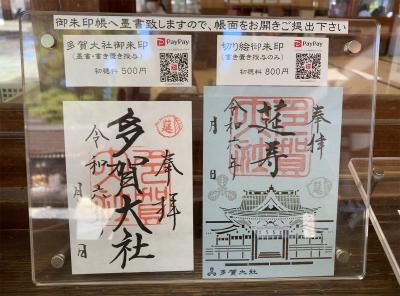 御朱印帳へ墨書致しますので、帳面をお開きご提出下さい
多賀大社御朱印
(墨書・書き置き授与)
初穂料 500円
PayPay
切り絵御朱印
(書き置き授与のみ)
初穂料 800円
PayPay
奉拝
多賀大社
令和六年
月
日
延
奉拝
延寿
多賀大社
令和六年
月
日
延
多賀大社